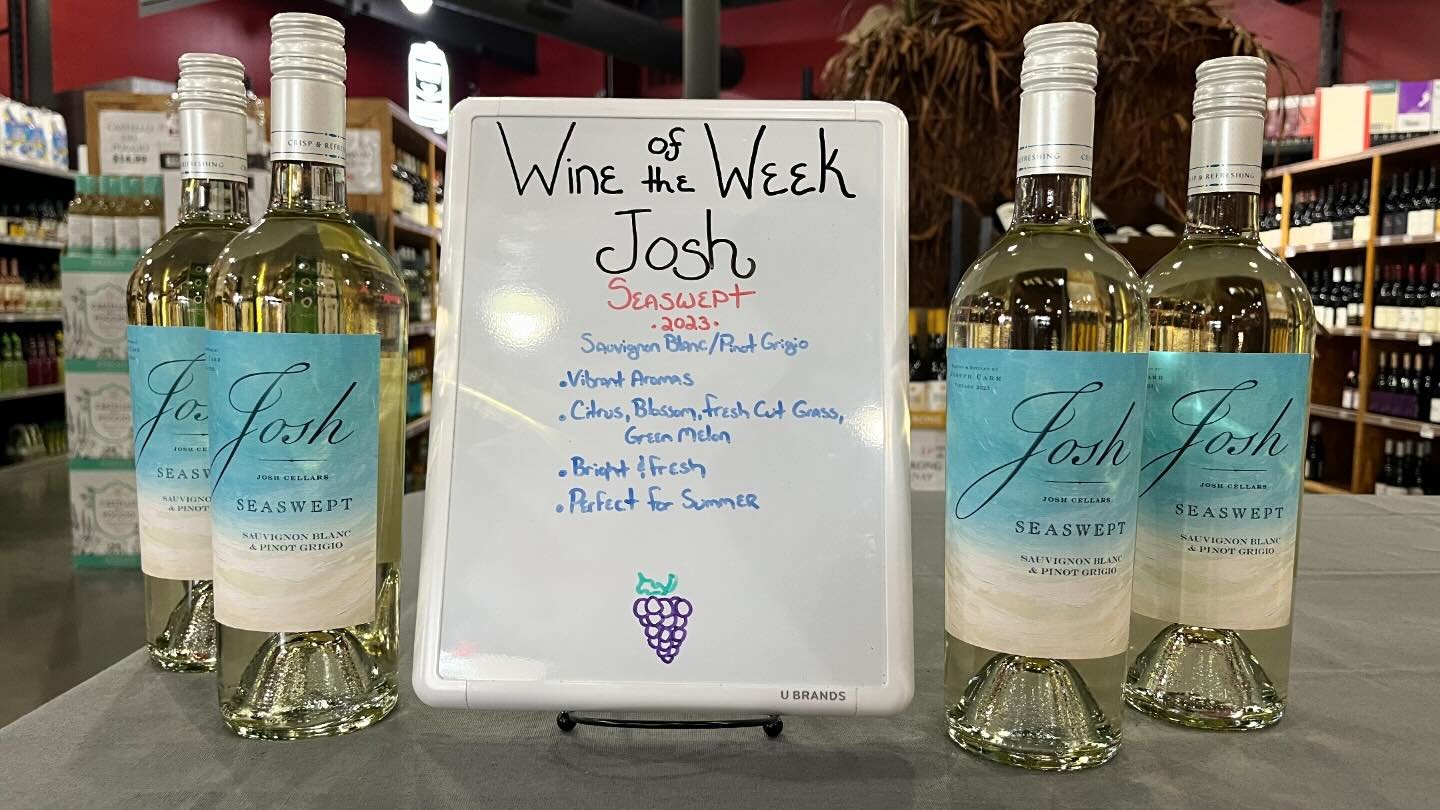 Wine of the Week
Josh
Seaswept
•2023•
Sauvignon Blanc/Pinot Grigio
•Vibrant Aromas
•Citrus, Blossom, fresh Cut Grass,
Green Melon
•Bright & Fresh
•Perfect for Summer
U BRANDS
REFRESHING
Jos
JOSH CE
SEASW
SAUVIGNON
& PINOT
CRISP & REFRE
Josh
JOSH CELLARS
SEASWEPT
SAUVIGNON BLANC
& PINOT GRIGIO
FRESHING
Josh
JOSH CELLARS
SEASWEPT
SAUVIGNON BLANC
& PINOT GRIGIO
CRISP & REFRESHING
Josh
JOSH CELLARS
SEASWEPT
SAUVIGNON BLANC
& PINOT GRIGIO